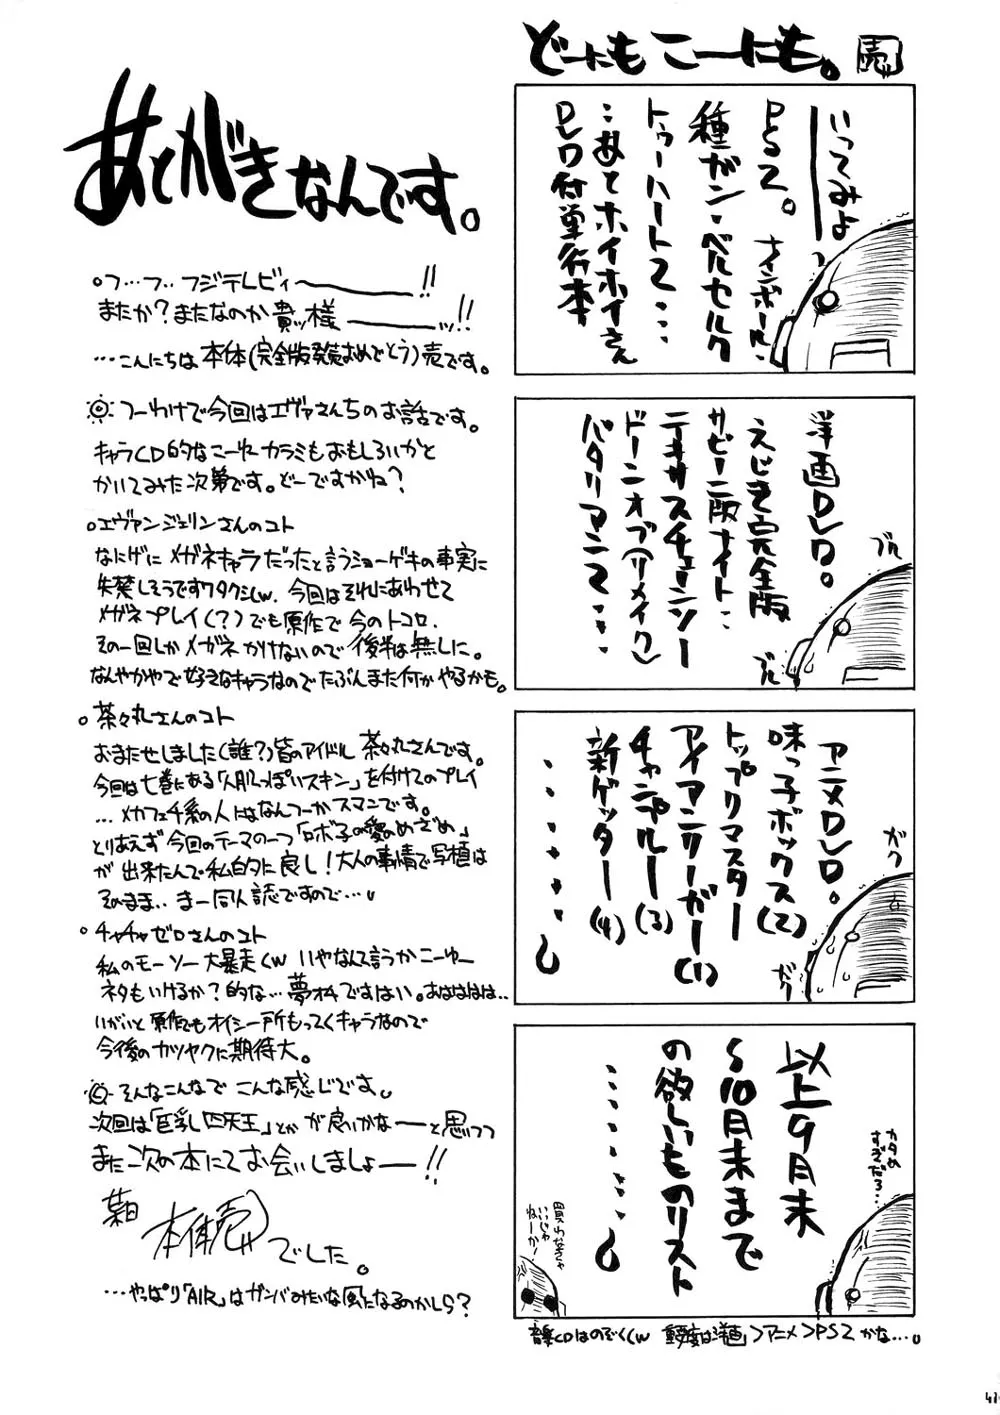 どーにもこーにも。 売
いってみよ
PS2。ナインボール・
種ガン・ベルセルク
トゥーハート2・・・
・・あとホイホイさん
DVD付単行本
洋画DVD。
えじき完全版
サビーニ版ナイト・・
テキサスチェーンソー
ドーンオブ(リメイク)
バタリアン2・・・・
ブル
ブル
アニメDVD。
味っ子ボックス(2)
トップリマスター
アイアンリーガー(1)
チャンプルー(3)
新ゲッター(4)
・・・・・・。
ガク
ガク
以上9月末
〜10月末まで
の欲しいものリスト
・・・・・・。
カタめ
すぎだろ…
買わなきゃ
いいじゃ
ねーか!
音楽CDはのぞく(w 重要度は洋画>アニメ>PS2かな…。
あとがきなんです。
○フ…フ‥フジテレビィ――――!!
またか?またなのか貴ッ様――――ッ!!
…こんにちは本体(完全版発売おめでとう)売です。
つーわけで今回はエヴァさんちのお話です。
キャラCD的なこーゆーカラミもおもしろいかと
かいてみた次第です。どーですかね?
○エヴァンジェリンさんのコト
なにげにメガネキャラだったと言うショーゲキの事実に
失禁しそうですワタクシ(w. 今回はそれにあわせて
メガネプレイ(?)でも原作で今のトコロ、
その一回しかメガネかけないので後半は無しに。
なんやかやで好きなキャラなのでたぶんまた何かやるかも。
○茶々丸さんのコト
おまたせしました(誰?)皆のアイドル茶々丸さんです。
今回は七巻にある「人肌っぽいスキン」を付けてのプレイ
…メカフェチ系の人にはなんつーかスマンです。
とりあえず今回のテーマの一つ「ロボ子の愛のめざめ」
が出来たんで私的に良し!大人の事情で写植は
そのまま‥まー同人誌ですので…。
○チャチャゼロさんのコト
私のモーソー大暴走(w いやなんて言うかこーゆー
ネタもいけるか?的な…夢オチですはい。あはははは‥
いがいと原作でもオイシー所もってくキャラなので
今後のカツヤクに期待大。
そんなこんなでこんな感じです。
次回は「巨乳四天王」とかが良いかなーと思いつつ
また次の本にてお会いしましょー!!
本体売
でした。
…やっぱり「AIR」はガンバみたいな風になるのかしら?
41